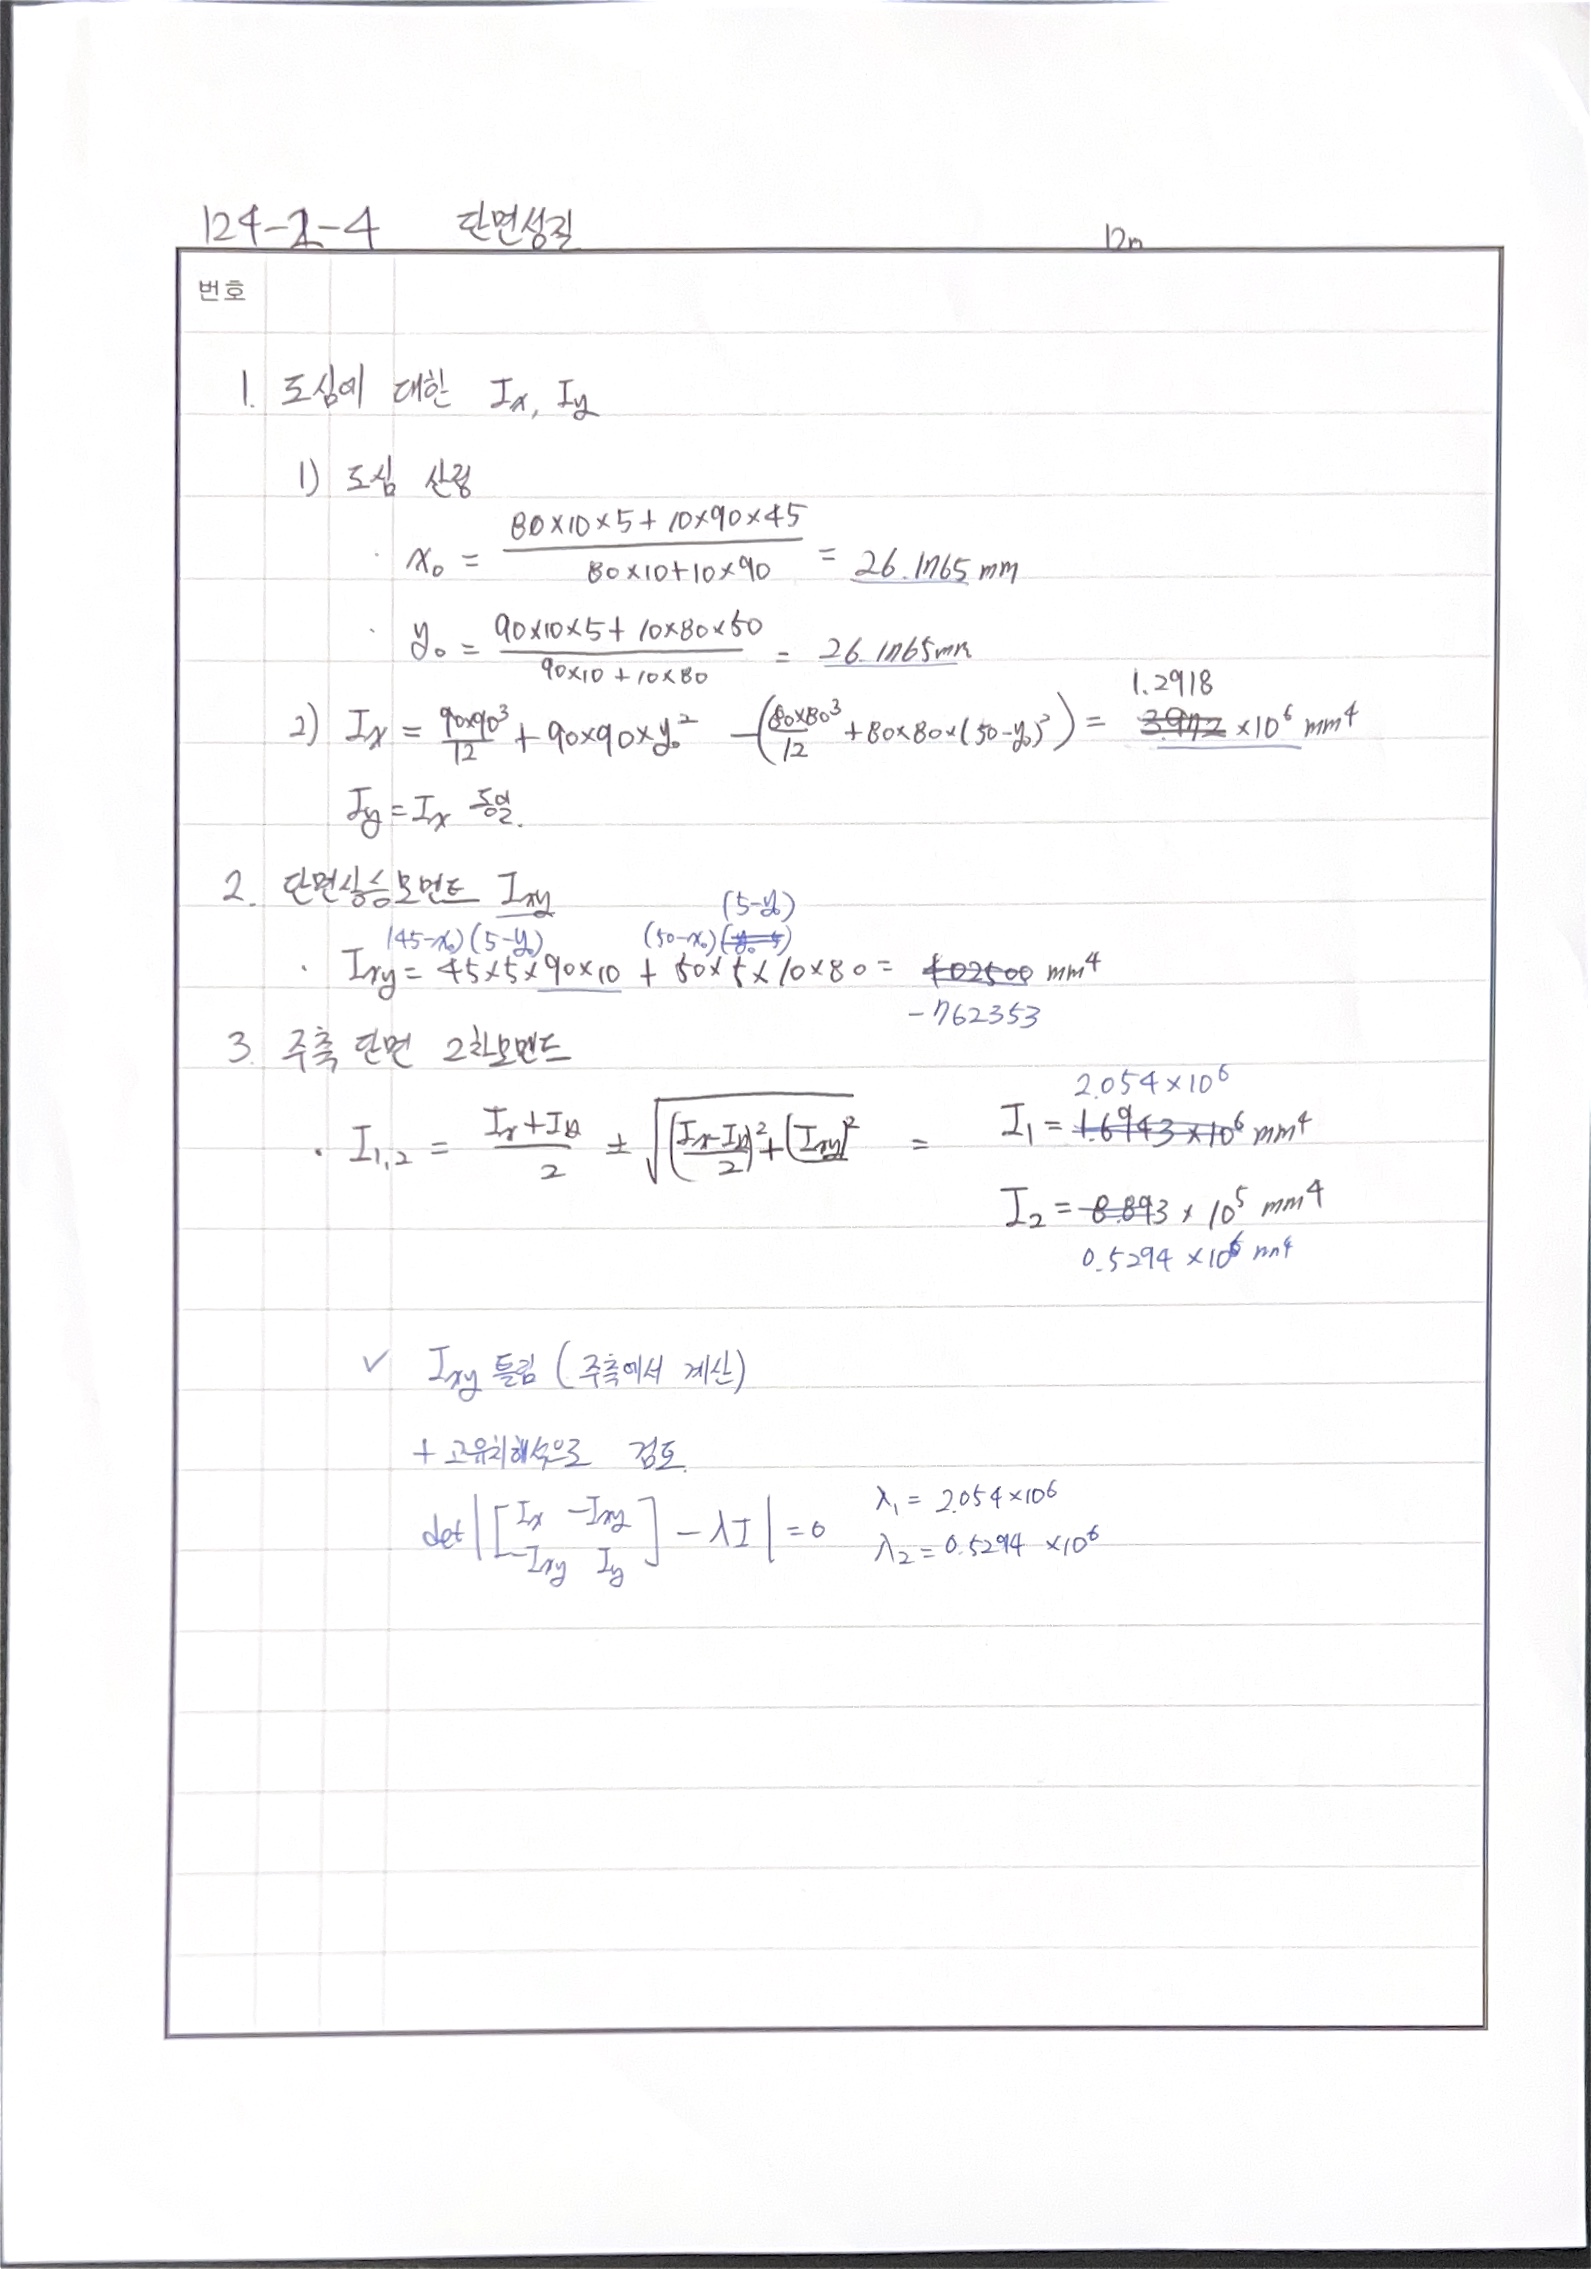 124-2-4 단면성질 12m
번호
1. 도심에 대한 Ix, Iy
1) 도심 산정
· x₀ = (80×10×5 + 10×90×45) / (80×10+10×90) = 26.1765 mm
· y₀ = (90×10×5 + 10×80×50) / (90×10+10×80) = 26.1765mm
1.2918
2) Ix = 90×90³/12 + 90×90×y₀² - (80×80³/12 + 80×80×(50-y₀)²) = 3.972 ×10⁶ mm⁴
Iy = Ix 동일.
2. 단면상승모먼트 Ixy
(5-y₀)
(45-x₀)(5-y₀) (50-x₀)(y₀-5)
· Ixy = 45×5×90×10 + 50×5×10×80 = 402500 mm⁴
-762353
3. 주축 단면 2차모멘트
2.054×10⁶
· I₁,₂ = (Ix+Iy)/2 ± √(((Ix-Iy)/2)²+(Ixy)²) = I₁ = 1.6943×10⁶ mm⁴
I₂ = 8.893 × 10⁵ mm⁴
0.5294 ×10⁶ mm⁴
✓ Ixy 틀림 (주축에서 계산)
+ 고유치해석으로 검토.
det|[Ix -Ixy
-Ixy Iy] - λI| = 0
λ₁ = 2.054×10⁶
λ₂ = 0.5294 ×10⁶